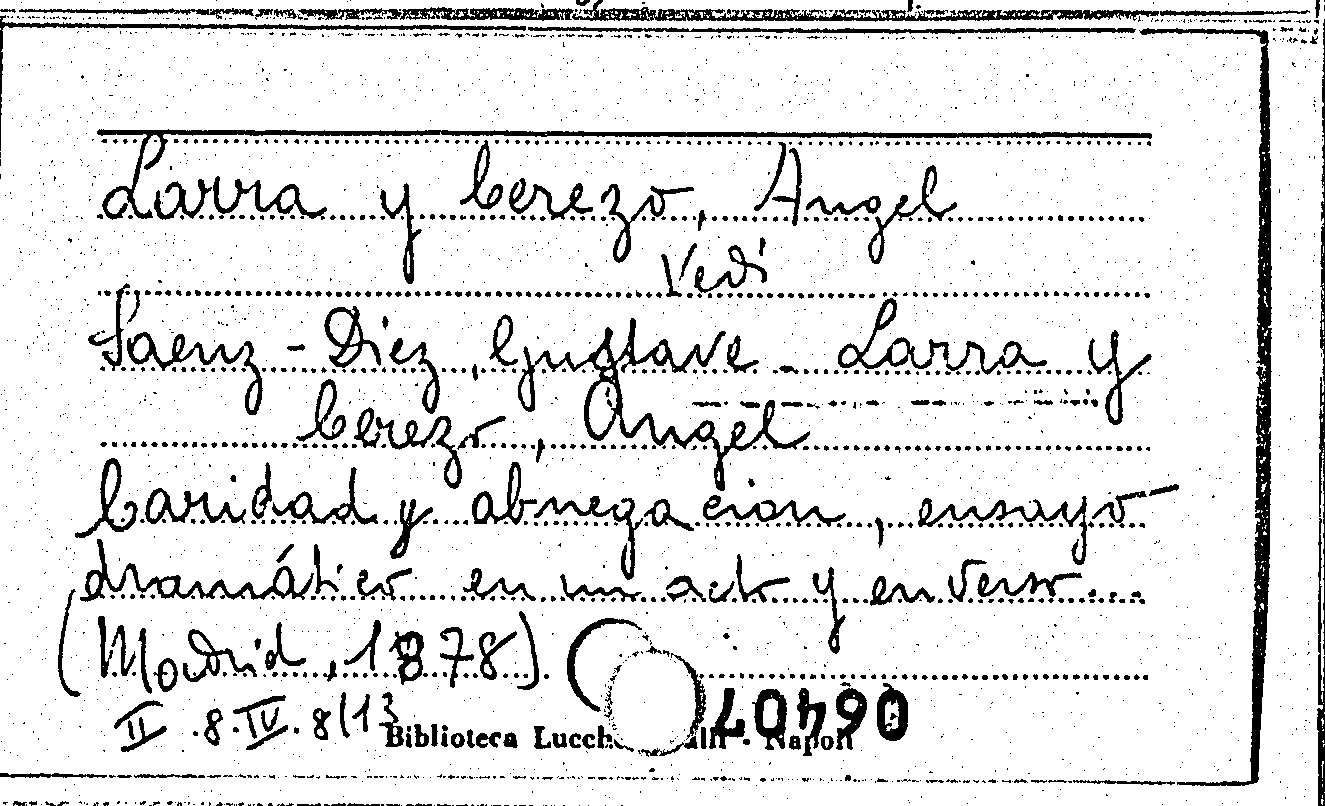 Larra y Cerezo, Angel
Vedi
Saenz-Diez, Gustave - Larra y
Cerezo, Angel
Caridad y abnegacion, ensayo
dramático en un acto y en verso...
(Madrid, 1878)
II.8.IV.8(13
Biblioteca Lucch alli - Napoli
06407